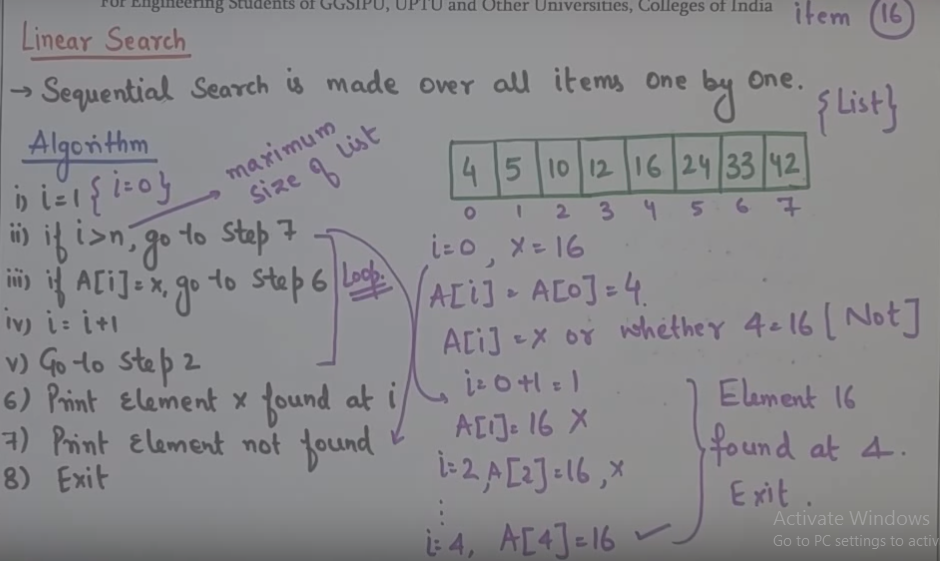 For Engineering Students of GGSIPU, UPTU and Other Universities, Colleges of India
item 16
Linear Search
→ Sequential Search is made over all items one by one.
{List}
Algorithm
maximum
size of list
i) i=1 {i=0}
ii) if i>n, go to Step 7
iii) if A[i]=x, go to step 6
iv) i= i+1
v) Go to Step 2
Loop.
6) Print Element x found at i
7) Print Element not found
8) Exit
4 5 10 12 16 24 33 42
0 1 2 3 4 5 6 7
i=0, x=16
A[i] = A[0]=4.
A[i] =x or whether 4=16 [Not]
i=0+1=1
A[1]=16 X
i=2,A[2]=16,x
⋮
i=4, A[4]=16 ✓
Element 16
found at 4.
Exit.
Activate Windows
Go to PC settings to activ